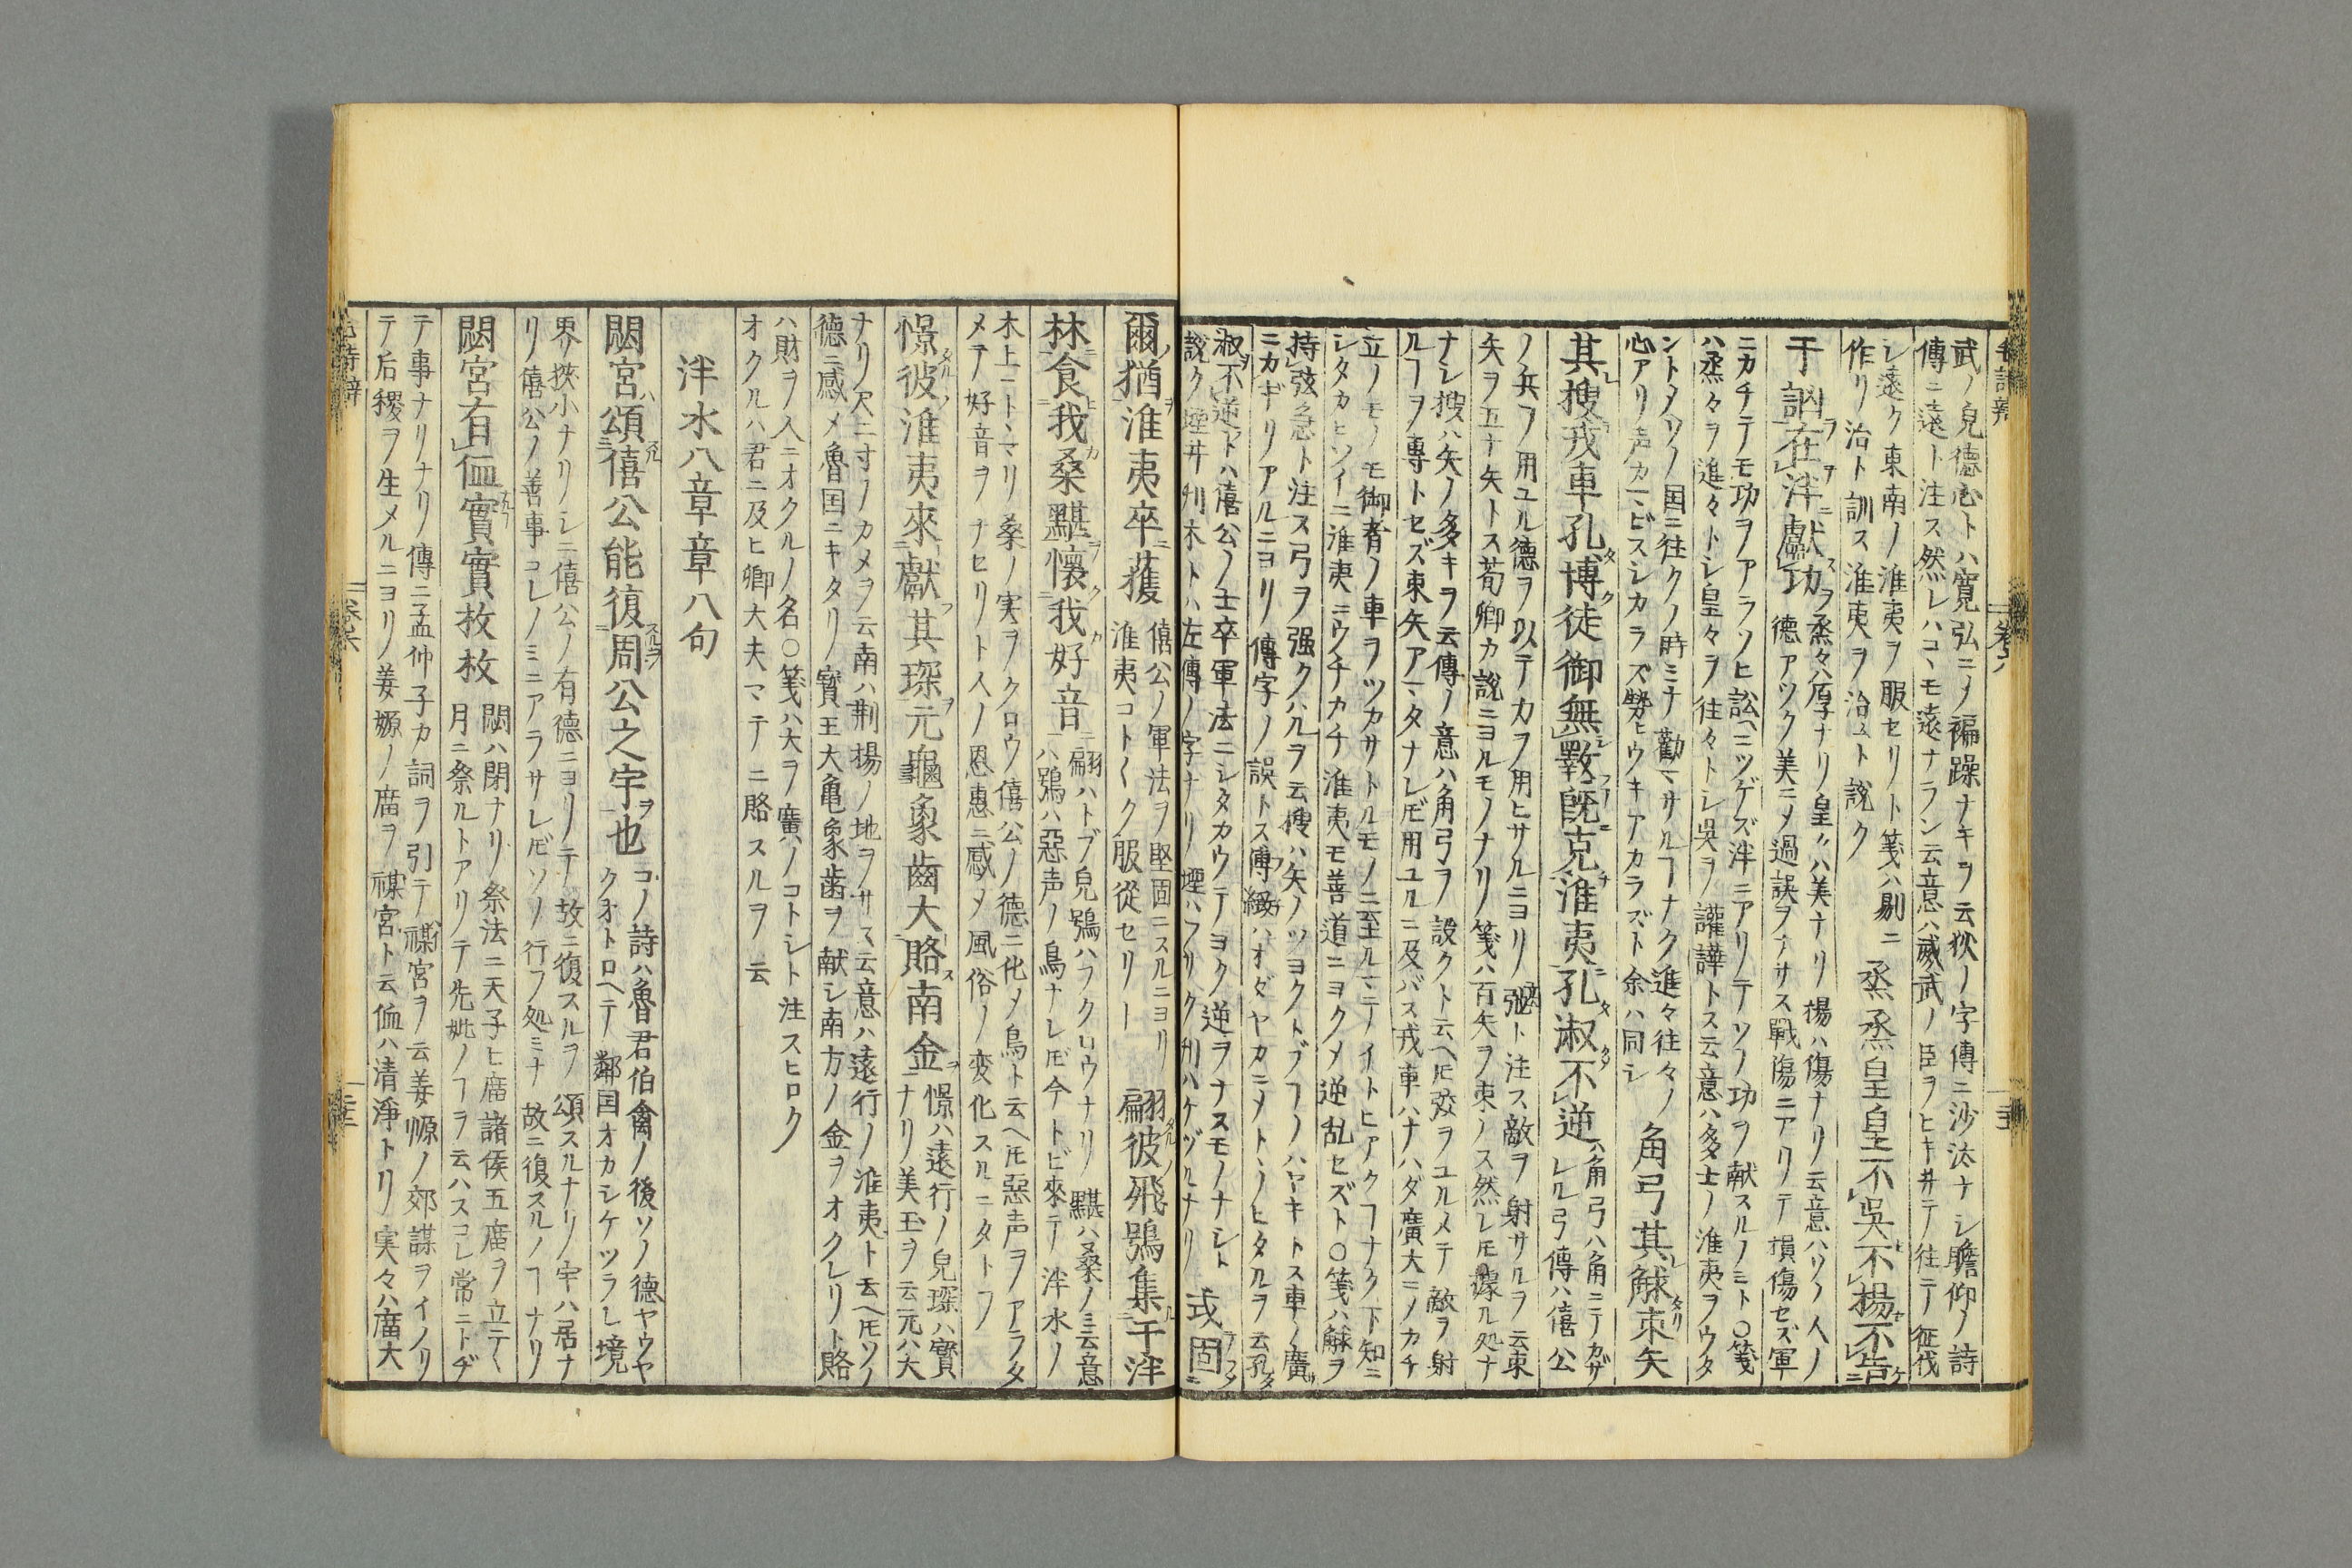 武ノ皃德心トハ寛弘ニメ褊躁ナキヲ云狄ノ字傳ニ沙汰ナシ瞻仰ノ詩
傳ニ遠ト注ス然レハコヽモ遠ナラン云意ハ威武ノ臣ヲヒキ井テ往ニテ征伐
シ遠ク東南ノ淮夷ヲ服セリト箋ハ剔ニ
作リ治ト訓ス淮夷ヲ治ムト説ク
烝烝皇皇不吳不揚不告
于訩在泮獻功
烝々ハ厚ナリ皇〃ハ美ナリ揚ハ傷ナリ云意ハソノ人ノ
德アツク美ニメ過誤ヲナサス戰傷ニアリテ損傷セズ軍
ニカチテモ功ヲアラソヒ訟ヘニツゲズ泮ニアリテソノ功ヲ献スルノミト〇箋
ハ烝々ヲ進々トシ皇々ヲ往々トシ吳ヲ讙譁トス云意ハ多士ノ淮夷ヲウタ
ントメソノ国ニ往クノ時ミナ勸マサルヿナク進々往々ノ
心アリ声カマビスシカラズ勢ヒウキアカラズト余ハ同シ
角弓其觩束矢
其搜戎車孔博徒御無斁既克淮夷孔淑不逆
角弓ハ角ニテカザ
レル弓傳ハ僖公
ノ兵ヲ用ユル德ヲ以テカヲ用ヒサルニヨリ弛ト注ス敵ヲ射サルヲ云東
矢ヲ五十矢トス荀卿カ説ニヨルモノナリノ箋ハ百矢ヲ束ノス然レ𪜈據ル処ナ
ナシ搜ハ矢ノ多キヲ云傳ノ意ハ角弓ヲ設クト云ヘ𪜈弦ヲユルメテ敵ヲ射
ルヿヲ専トセズ束矢アマタナレ𪜈用ユルニ及バス戎車ハナハダ廣大ニメカチ
立ノモノモ御者ノ車ヲツカサトルモノニ至ルマテイトヒアクヿナク下知ニ
シタカヒソイニ淮夷ニウチカチ淮夷モ善道ニヨクメ逆乱セズト〇箋ハ觩ヲ
持弦急ト注ス弓ヲ强クハルヲ云搜ハ矢ノツヨクトブヿノハヤキトス車ノ廣
ニカギリアルニヨリ傳字ノ誤トス傅緻ハオダヤカニメトヽノヒタルヲ云孔
淑不逆トハ僖公ノ士卒軍法ニシタカウテヨク逆ヲナスモノナシト
説ク堙井刋木トハ左傳ノ字ナリ堙ハフリク刋ハケヅルナリ
式固
爾猶淮夷卒獲
僖公ノ軍法ヲ堅固ニスルニヨリ
淮夷コト〱ク服從セリー
翩彼飛鴞集于泮
林食我桑黮懷我好音
翩ハトブ皃鴞ハフクロウナリ黮ハ桑ノミ云意
ハ鴞ハ惡声ノ鳥ナレ𪜈今トビ來テ泮水ノ
木上ニトヽマリ桑ノ実ヲクロウ僖公ノ德ニ化メ鳥ト云ヘ𪜈惡声ヲアラタ
メテ好音ヲナセリト人ノ恩惠ニ感メ風俗ノ変化スルニタトフ
憬彼淮夷來獻其琛元龜象齒大賂南金
憬ハ遠行ノ皃琛ハ寳
ナリ美玉ヲ云元ハ大
ナリ尺二寸ノカメヲ云南ハ荆揚ノ地ヲサス云意ハ遠行ノ淮夷ト云ヘ𪜈ソノ
德ニ感メ魯国ニキタリノ寳玉大亀象歯ヲ献シ南方ノ金ヲオクレリト賂
ハ財ヲ人ニオクルノ名〇箋ハ大ヲ廣ノコトシト注スヒロク
オクルハ君ニ及ヒ卿大夫マテニ賂スルヲ云
泮水八章章八句
閟宮頌僖公能復周公之宇也
コノ詩ハ魯君伯禽ノ後ソノ德ヤウヤ
クオトロヘテ鄰国オカシケツラレ境
界挾小ナリノシニ僖公ノ有德ニヨリテ故ニ復スルヲ頌スルナリノ宇ハ居ナ
リノ僖公ノ善事コレノミニアラサレ𪜈ソノ行フ処ミナ故ニ復スルノヿナリ
閟宮有侐實實枚枚
閟ハ閉ナリノ祭法ニ天子ヒ廟諸侯五廟ヲ立テ〱
月ニ祭ルトアリテ先妣ノヿヲ云ハスコレ常ニトヂ
テ事ナリナリノ傳ニ孟仲子カ詞ヲ引テ禖宮ヲ云姜嫄ノ郊謀ヲイノリ
テ后稷ヲ生メルニヨリノ姜嫄ノ廟ヲ禖宮ト云侐ハ清淨トリノ実々ハ廣大